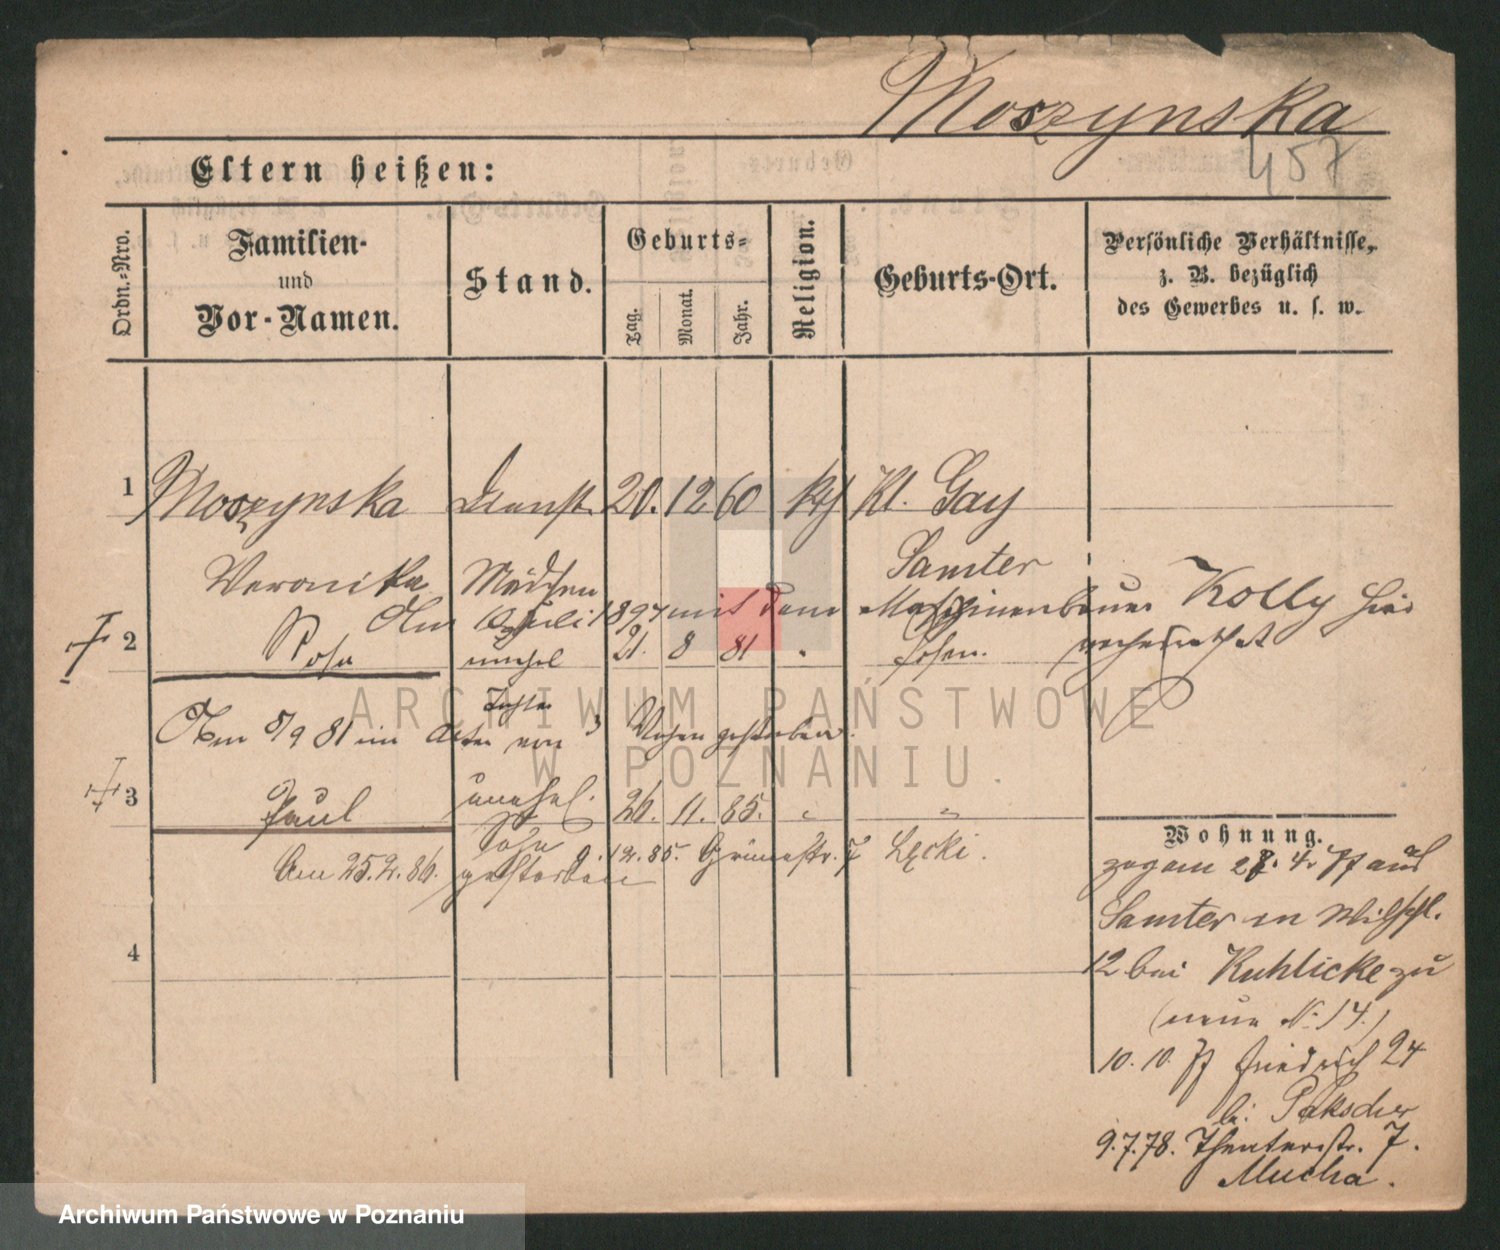 Moszynska
457
Eltern heißen:
Ordn.-Nro.
Familien-
und
Vor-Namen.
Stand.
Geburts-
Tag.
Monat.
Jahr.
Religion.
Geburts-Ort.
Persönliche Verhältnisse,
z. B. bezüglich
des Gewerbes u. s. w.
1 Moszynska Dienst 20. 12 60 kth Kl. Gay
Veronika Mädchen Samter
Am Juli 1897 mit dem Maschinenbauer Kolly hier
verheirathet
2 Rosa unehel 21. 8 81 " Posen.
Tochter
Am 5/9 81 im Alter von 3 Wochen gestorben.
3 Paul unehel. 26. 11. 85. " "
Sohn 9. 12. 85. Grünestr. 7 Łęcki.
Am 25.2.86. gestorben
4
Wohnung.
zog am 28. 4. 77 aus
Samter in Wilhpl.
12 bei Kuhlicke zu
(neue N. 14.)
10. 10. 77 Friedrich 24
b. Pakscher
9.7.78. Theaterstr. 7.
Mucha.
ARCHIWUM PAŃSTWOWE
W POZNANIU
Archiwum Państwowe w Poznaniu